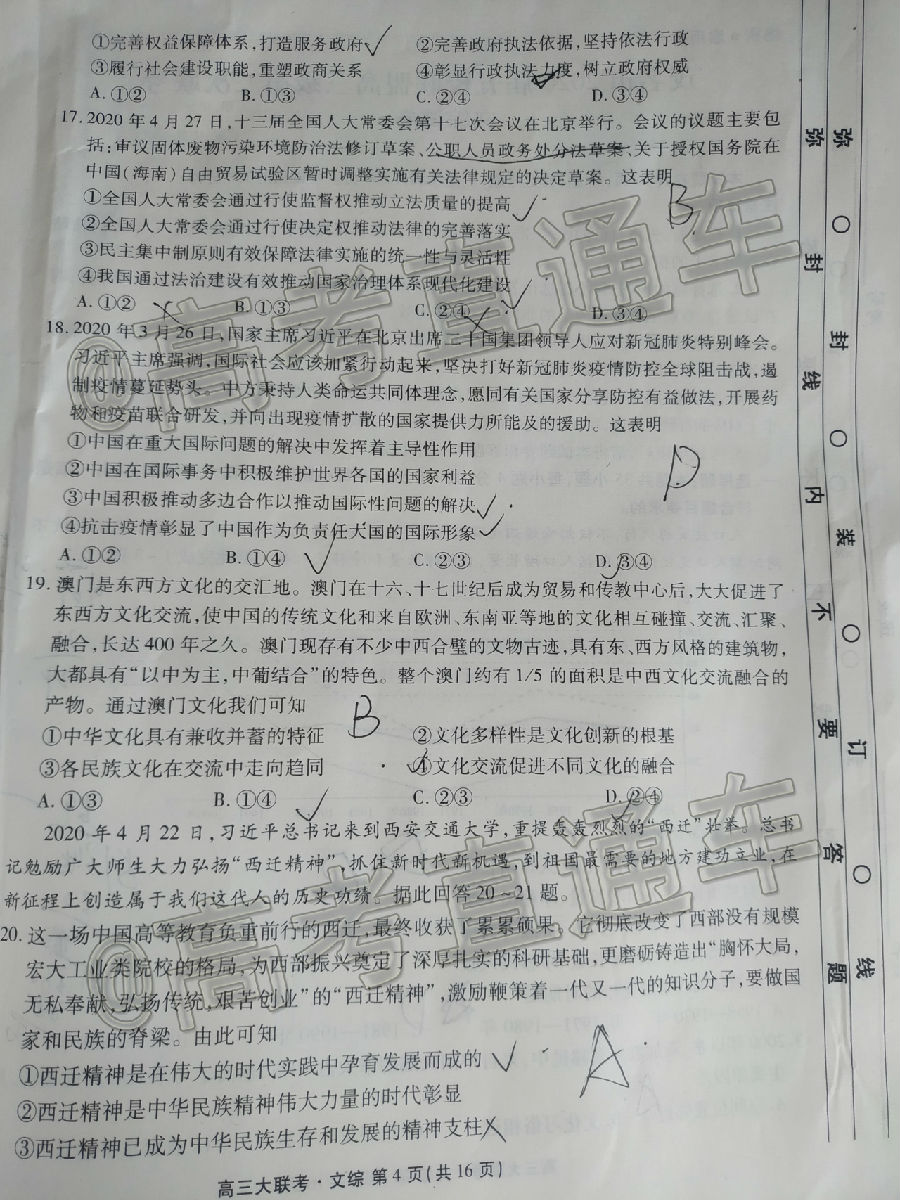 ①完善权益保障体系,打造服务政府 ②完善政府执法依据,坚持依法行政
③履行社会建设职能,重塑政商关系 ④彰显行政执法力度,树立政府权威
A.①② B.①③ C.②④ D.③④
17.2020年4月27日,十三届全国人大常委会第十七次会议在北京举行。会议的议题主要包
括:审议固体废物污染环境防治法修订草案、公职人员政务处分法草案、关于授权国务院在
中国(海南)自由贸易试验区暂时调整实施有关法律规定的决定草案。这表明
①全国人大常委会通过行使监督权推动立法质量的提高
②全国人大常委会通过行使决定权推动法律的完善落实
③民主集中制原则有效保障法律实施的统一性与灵活性
④我国通过法治建设有效推动国家治理体系现代化建设
A.①② B.①③ C.②④ D.③④
B
18.2020年3月26日,国家主席习近平在北京出席二十国集团领导人应对新冠肺炎特别峰会。
习近平主席强调,国际社会应该加紧行动起来,坚决打好新冠肺炎疫情防控全球阻击战,遏
制疫情蔓延势头。中方秉持人类命运共同体理念,愿同有关国家分享防控有益做法,开展药
物和疫苗联合研发,并向出现疫情扩散的国家提供力所能及的援助。这表明
①中国在重大国际问题的解决中发挥着主导性作用
②中国在国际事务中积极维护世界各国的国家利益
③中国积极推动多边合作以推动国际性问题的解决
④抗击疫情彰显了中国作为负责任大国的国际形象
A.①② B.①④ C.②③ D.③④
D
19.澳门是东西方文化的交汇地。澳门在十六、十七世纪后成为贸易和传教中心后,大大促进了
东西方文化交流,使中国的传统文化和来自欧洲、东南亚等地的文化相互碰撞、交流、汇聚、
融合,长达400年之久。澳门现存有不少中西合璧的文物古迹,具有东、西方风格的建筑物,
大都具有“以中为主,中葡结合”的特色。整个澳门约有1/5的面积是中西文化交流融合的
产物。通过澳门文化我们可知
B
①中华文化具有兼收并蓄的特征 ②文化多样性是文化创新的根基
③各民族文化在交流中走向趋同 ④文化交流促进不同文化的融合
A.①③ B.①④ C.②③ D.②④
2020年4月22日,习近平总书记来到西安交通大学,重提轰轰烈烈的“西迁”壮举。总书
记勉励广大师生大力弘扬“西迁精神”,抓住新时代新机遇,到祖国最需要的地方建功立业,在
新征程上创造属于我们这代人的历史功绩。据此回答20~21题。
20.这一场中国高等教育负重前行的西迁,最终收获了累累硕果。它彻底改变了西部没有规模
宏大工业类院校的格局,为西部振兴奠定了深厚扎实的科研基础,更磨砺铸造出“胸怀大局,
无私奉献,弘扬传统,艰苦创业”的“西迁精神”,激励鞭策着一代又一代的知识分子,要做国
家和民族的脊梁。由此可知
①西迁精神是在伟大的时代实践中孕育发展而成的
②西迁精神是中华民族精神伟大力量的时代彰显
③西迁精神已成为中华民族生存和发展的精神支柱
A
高三大联考·文综 第4页(共16页)
弥封线内不要答题
弥封装订线
@高考直通车
@高考直通车